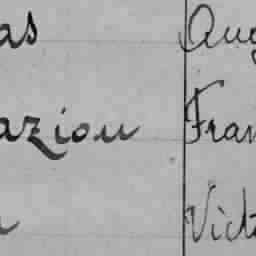 as Aug
aziou Fran
Vict